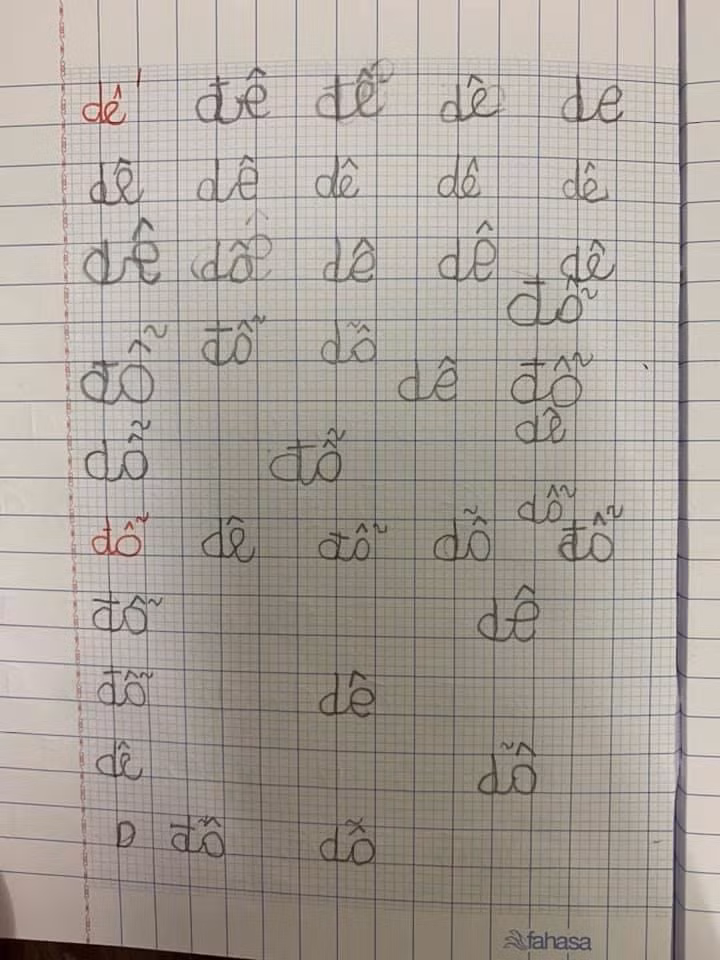 dê đê dễ dê de
dê dê dê dê dê
dê dỗ dê dê dê
đỗ
đỗ đỗ dỗ dê đỗ
dê
dỗ đỗ
dỗ
dỗ dê đỗ dỗ đỗ
đỗ dê
dỗ dê
dê dỗ
D đỗ dỗ
fahasa